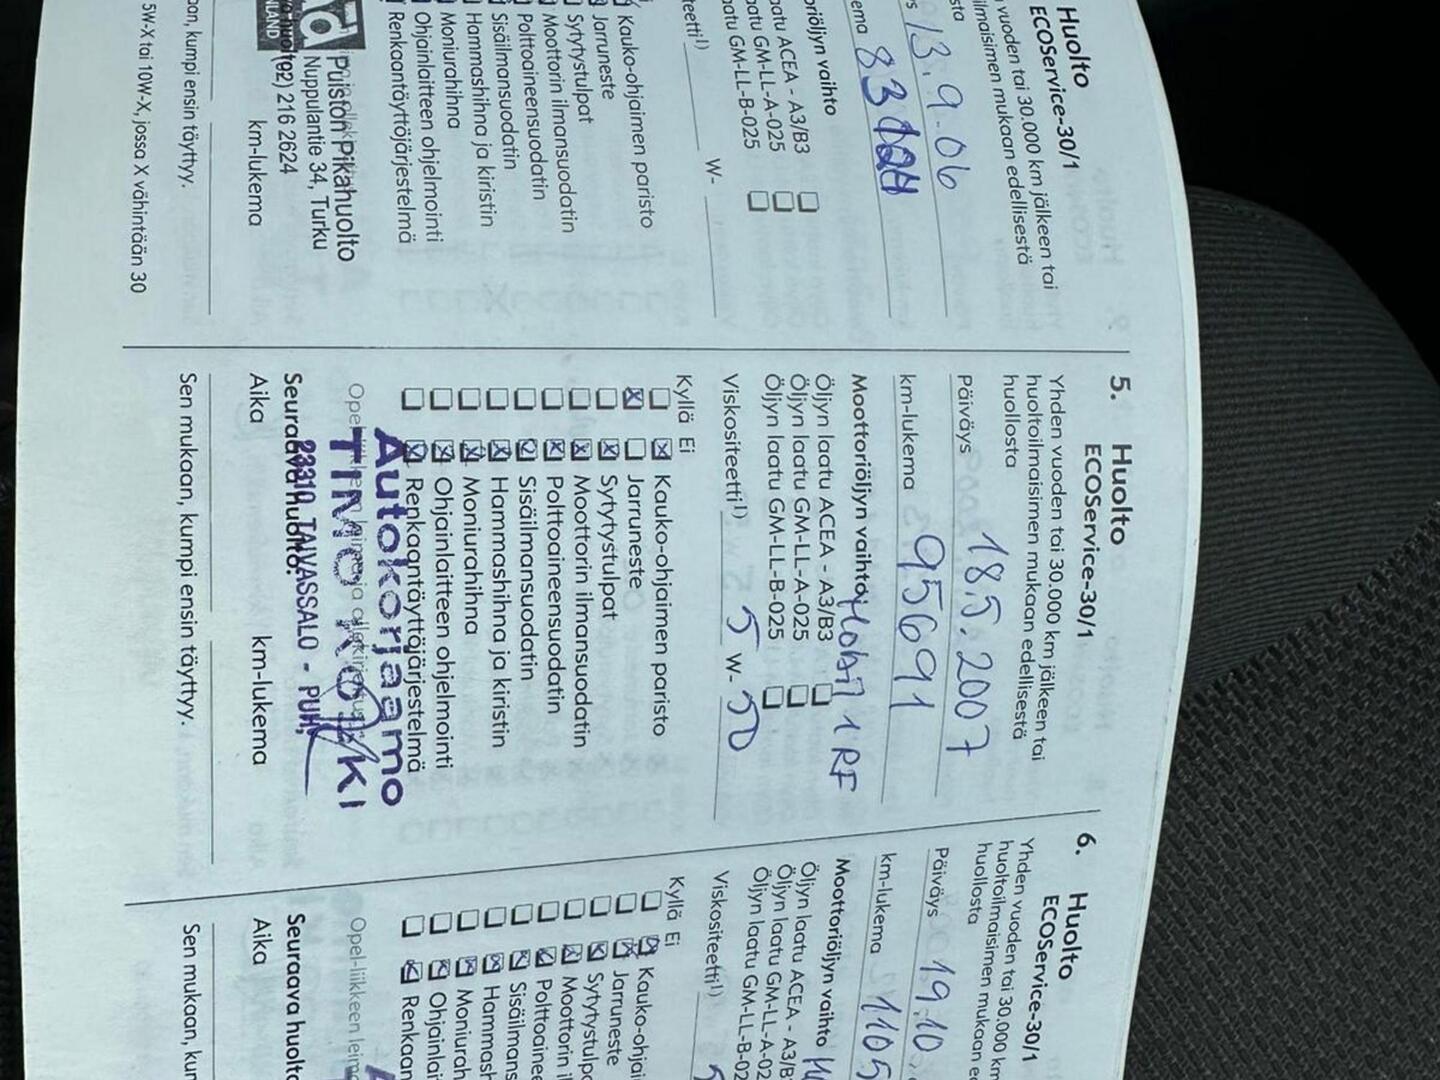 Huolto
ECOService-30/1
vuoden tai 30.000 km jälkeen tai
ilmaisimen mukaan edellisestä
sta
13.9.06
ema
öriöljyn vaihto
aatu ACEA - A3/B3
aatu GM-LL-A-025
aatu GM-LL-B-025
teetti¹⁾ W-
Kauko-ohjaimen paristo
Jarruneste
Sytytystulpat
Moottorin ilmansuodatin
Polttoaineensuodatin
Sisäilmansuodatin
Hammashihna ja kiristin
Moniurahihna
Ohjainlaitteen ohjelmointi
Renkaantäyttöjärjestelmä
Puiston Pikahuolto
Nuppulantie 34, Turku
(02) 216 2624
km-lukema
an, kumpi ensin täyttyy.
5W-X tai 10W-X, jossa X vähintään 30
5. Huolto
ECOService-30/1
Yhden vuoden tai 30.000 km jälkeen tai
huoltoilmaisimen mukaan edellisestä
huollosta
Päiväys 18.5.2007
km-lukema 95691
Moottoriöljyn vaihto Mobil 1 RF
Öljyn laatu ACEA - A3/B3
Öljyn laatu GM-LL-A-025
Öljyn laatu GM-LL-B-025
Viskositeetti¹⁾ 5 W- 50
Kyllä Ei
Kauko-ohjaimen paristo
Jarruneste
Sytytystulpat
Moottorin ilmansuodatin
Polttoaineensuodatin
Sisäilmansuodatin
Hammashihna ja kiristin
Moniurahihna
Ohjainlaitteen ohjelmointi
Renkaantäyttöjärjestelmä
Autokorjaamo
TIMO
23310 TAIVASSALO - PUH.
Seuraava huolto:
Aika km-lukema
Sen mukaan, kumpi ensin täyttyy.
6. Huolto
ECOService-30/1
Yhden vuoden tai 30.000 km
huoltoilmaisimen mukaan e
huollosta
Päiväys 19.10
km-lukema 1105
Moottoriöljyn vaihto
Öljyn laatu ACEA - A3/B
Öljyn laatu GM-LL-A-02
Öljyn laatu GM-LL-B-02
Viskositeetti¹⁾ 5
Kyllä Ei
Kauko-ohjai
Jarruneste
Sytytystulpa
Moottorin il
Polttoainee
Sisäilmans
Hammash
Moniurah
Ohjainlai
Renkaan
Opel-liikkeen leim
Seuraava huolto
Aika
Sen mukaan, kum